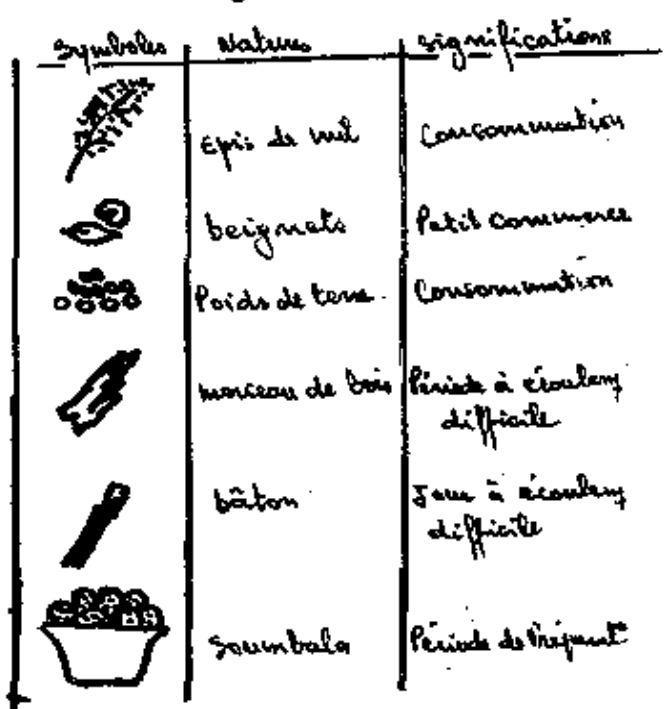 Symboles Natures significations
Epis de mil Consommation
beignets Petit commerce
Poids de terre. Consommation
morceau de bois Période à
difficile
bâton à
difficile
Soumbala Période de